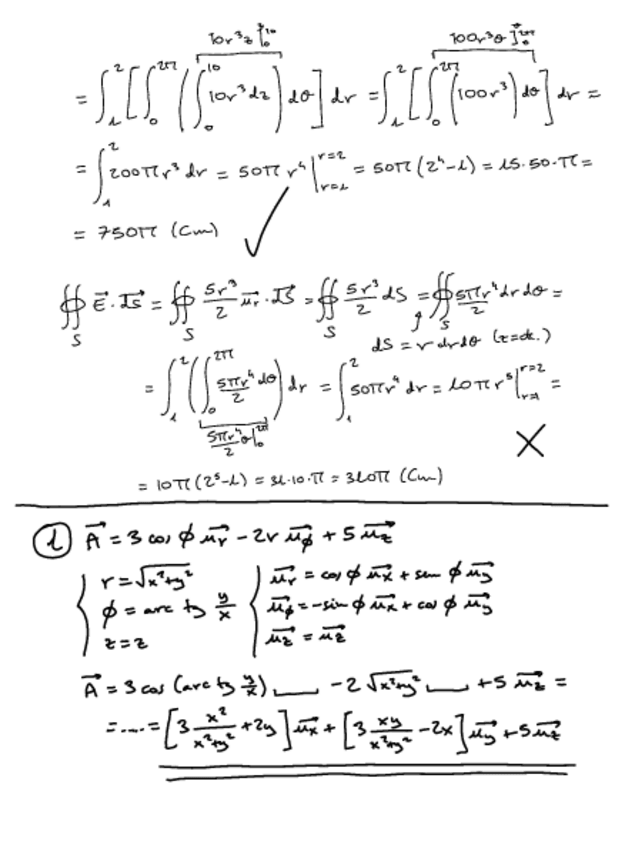 10r³z]₀¹⁰ 100r³θ]₀^2π
= ∫₁² [∫₀^2π (∫₀¹⁰ 10r³dz) dθ] dr = ∫₁² [∫₀^2π (100r³) dθ] dr =
= ∫₁² 200πr³ dr = 50π r⁴ |_{r=1}^{r=2} = 50π(2⁴-1) = 15·50·π =
= 750π (Cm) ✓
∯_S E⃗·dS⃗ = ∯_S 5r³/2 u⃗r·dS⃗ = ∯_S 5r³/2 dS = ∯_S 5πr⁴/2 dr dθ =
dS = r dr dθ (z=cte.)
= ∫₁² (∫₀^2π 5πr⁴/2 dθ) dr = ∫₁² 50πr⁴ dr = 10πr⁵ |_{r=1}^{r=2} =
5πr⁴/2 θ|₀^2π
= 10π(2⁵-1) = 31·10·π = 310π (Cm) ✗
① A⃗ = 3 cos ϕ u⃗r - 2r u⃗ϕ + 5 u⃗z
{ r = √(x²+y²) { u⃗r = cos ϕ u⃗x + sen ϕ u⃗y
ϕ = arc tg y/x u⃗ϕ = -sin ϕ u⃗x + cos ϕ u⃗y
z = z u⃗z = u⃗z
A⃗ = 3 cos (arc tg y/x) ___ - 2√(x²+y²) ___ + 5 u⃗z =
= .... = [3 x²/(x²+y²) + 2y] u⃗x + [3 xy/(x²+y²) - 2x] u⃗y + 5u⃗z